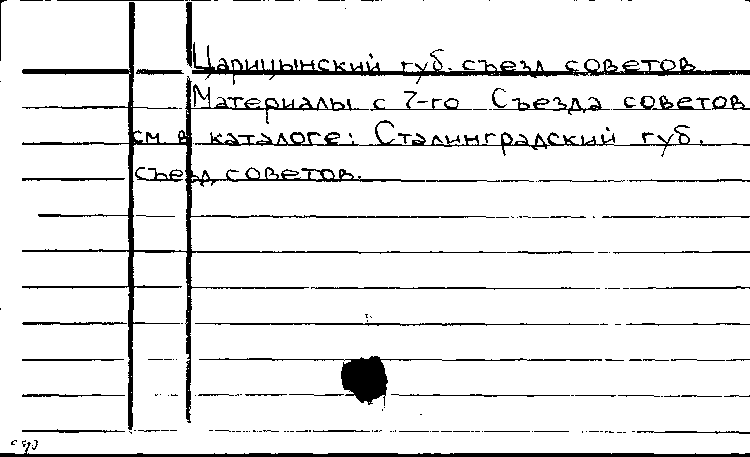 Царицынский губ. съезд советов
Материалы с 7-го Съезда советов
см. в каталоге: Сталинградский губ.
съезд советов.